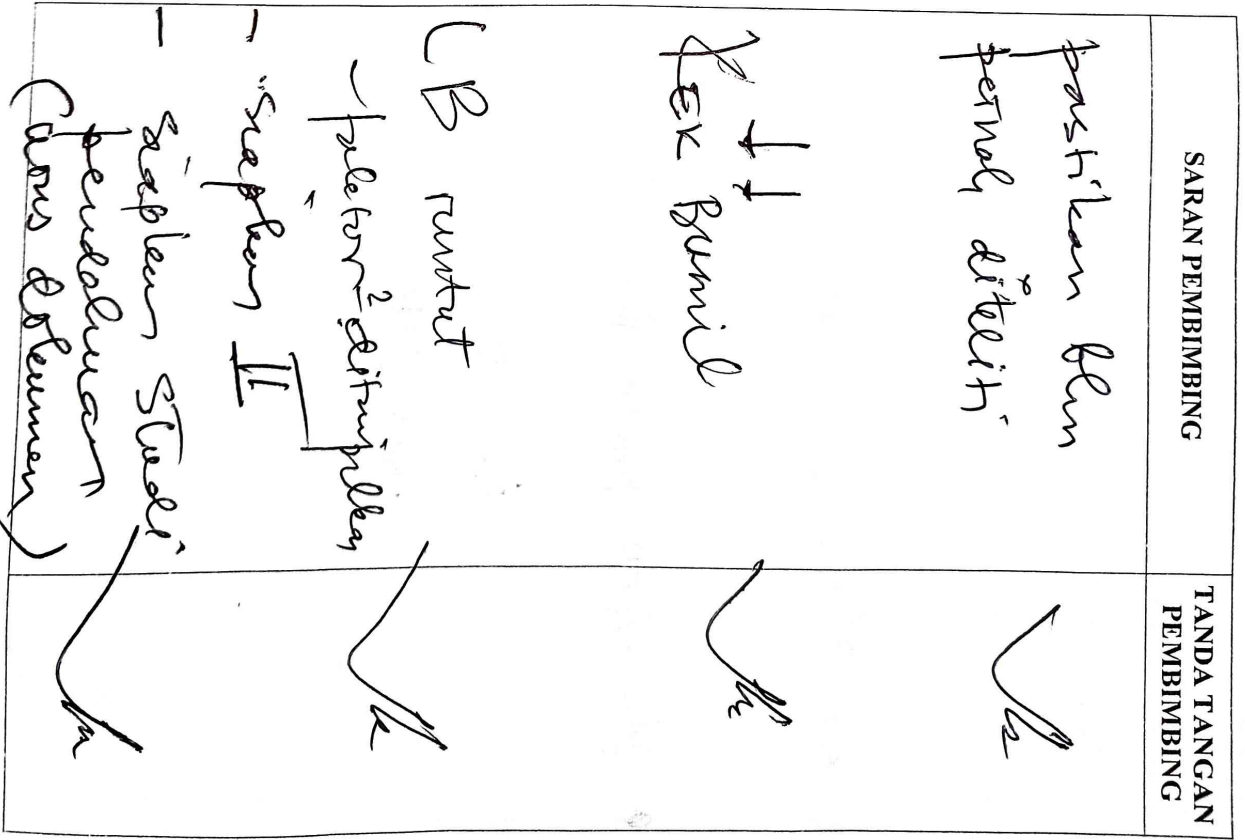 SARAN PEMBIMBING
TANDA TANGAN
PEMBIMBING
pastikan blum
pernah diteliti
↓ ↓
KEK Bumil
LB runtut
- faktor² ditampilkan
- siapkan II
- siapkan Studi
pendahuluan
(acous dokumen)